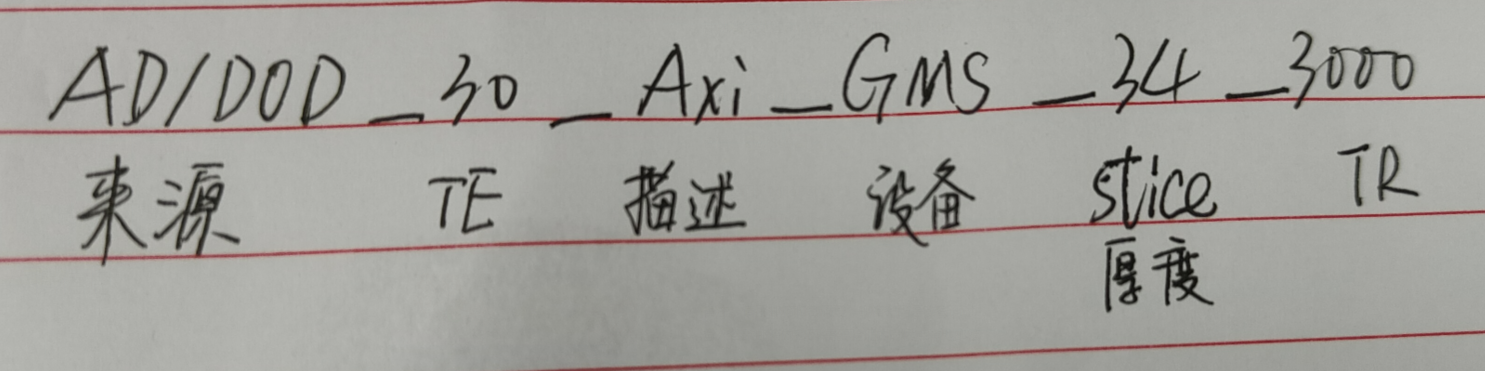 AD/DOD_30_Axi_GMS_34_3000
来源 TE 描述 设备 slice TR
厚度